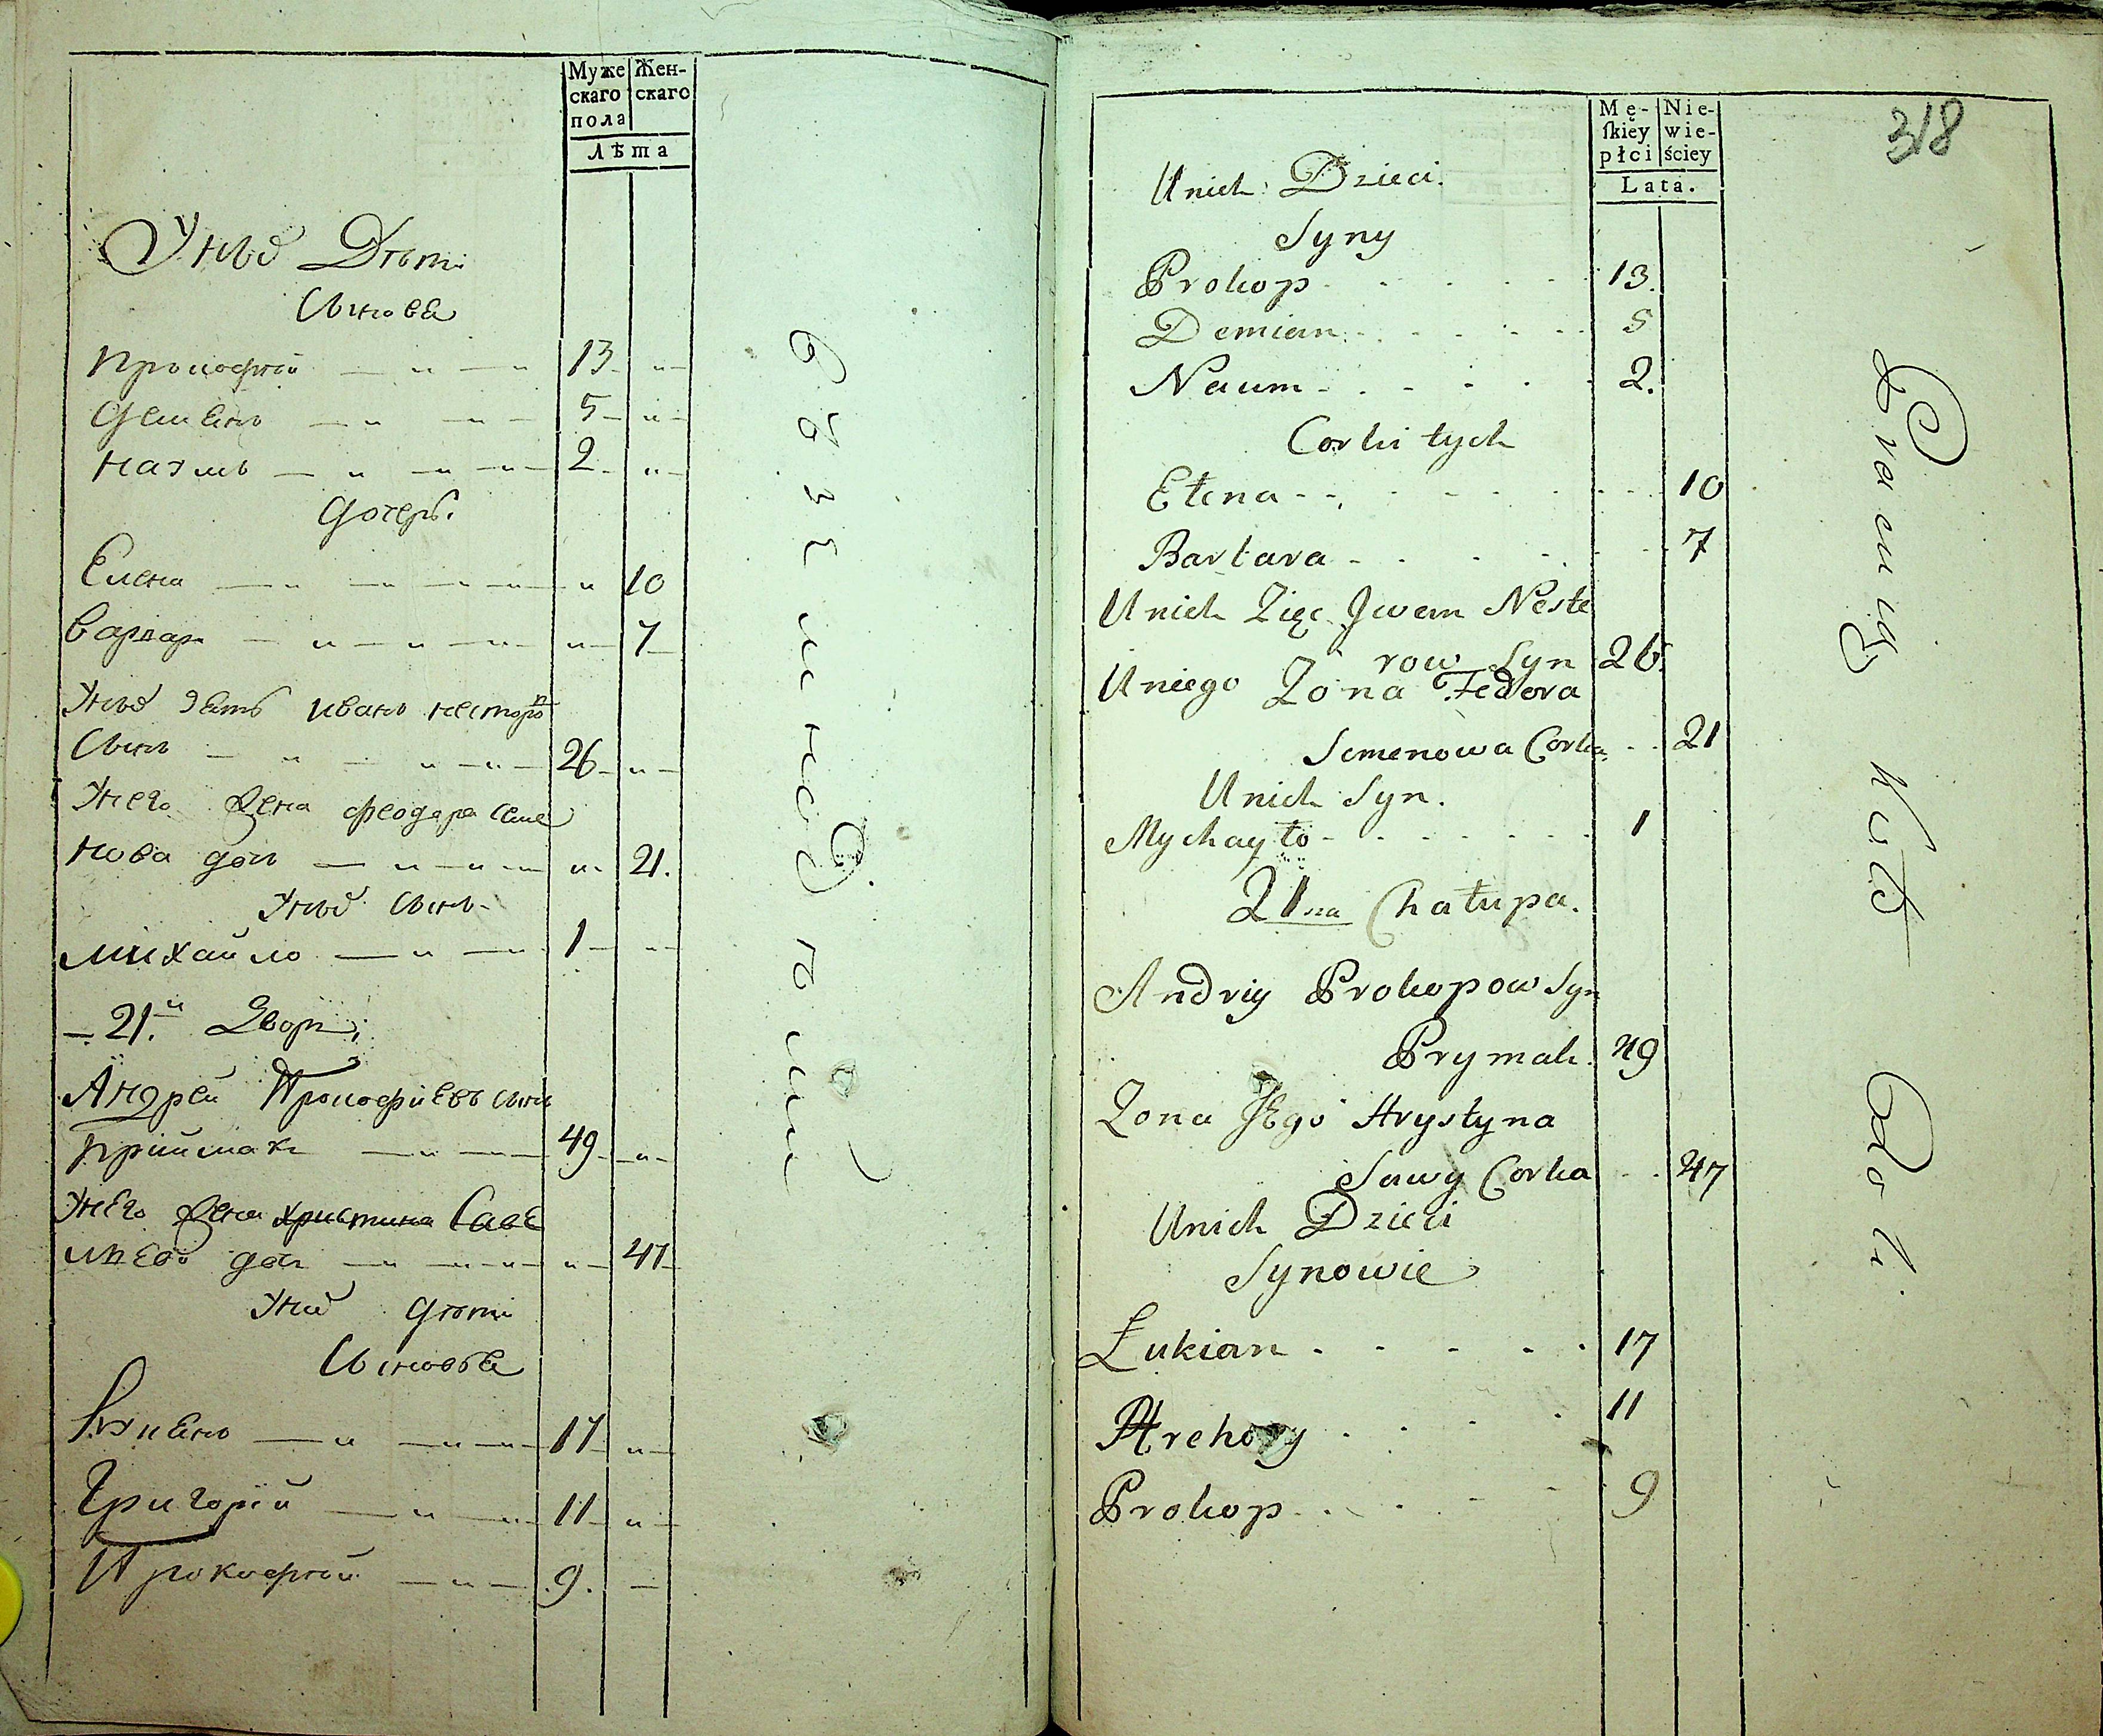 Муже Жен-
скаго скаго
пола
Лѣта
У них Дѣти
Синове
Прокофей 13
Демѣян 5
Наум 2
Дочери
Елена 10
Варвара 7
У них зять Иван Несторов
Син 26
У него жена Феодора Семе
нова дочь 21.
У них Син
Михайло 1
21.й Двор
Андрей Прокофиев син
Приймак 49
У него жена Христина Саве
лиева дочь 47
У них дѣти
Синове
Лукиян 17
Григорий 11
Прокофей 9.
318
Mę- Nie-
ſkiey wie-
płci ściey
Lata.
U nich Dzieci.
Syny
Prokop 13.
Demian 5
Naum 2.
Corki tych
Elena 10
Barbara 7
U nich Zięc Jwan Neste
row Syn 26
U niego Zona Fedora
Semenowa Corka 21
U nich Syn.
Mychayło 1
21na Chałupa.
Andriy Prokopow Syn
Prymak 49
Zona Jego Hrystyna
Sawy Corka 47
U nich Dzieci
Synowie
Łukian 17
Hrehory 11
Prokop 9